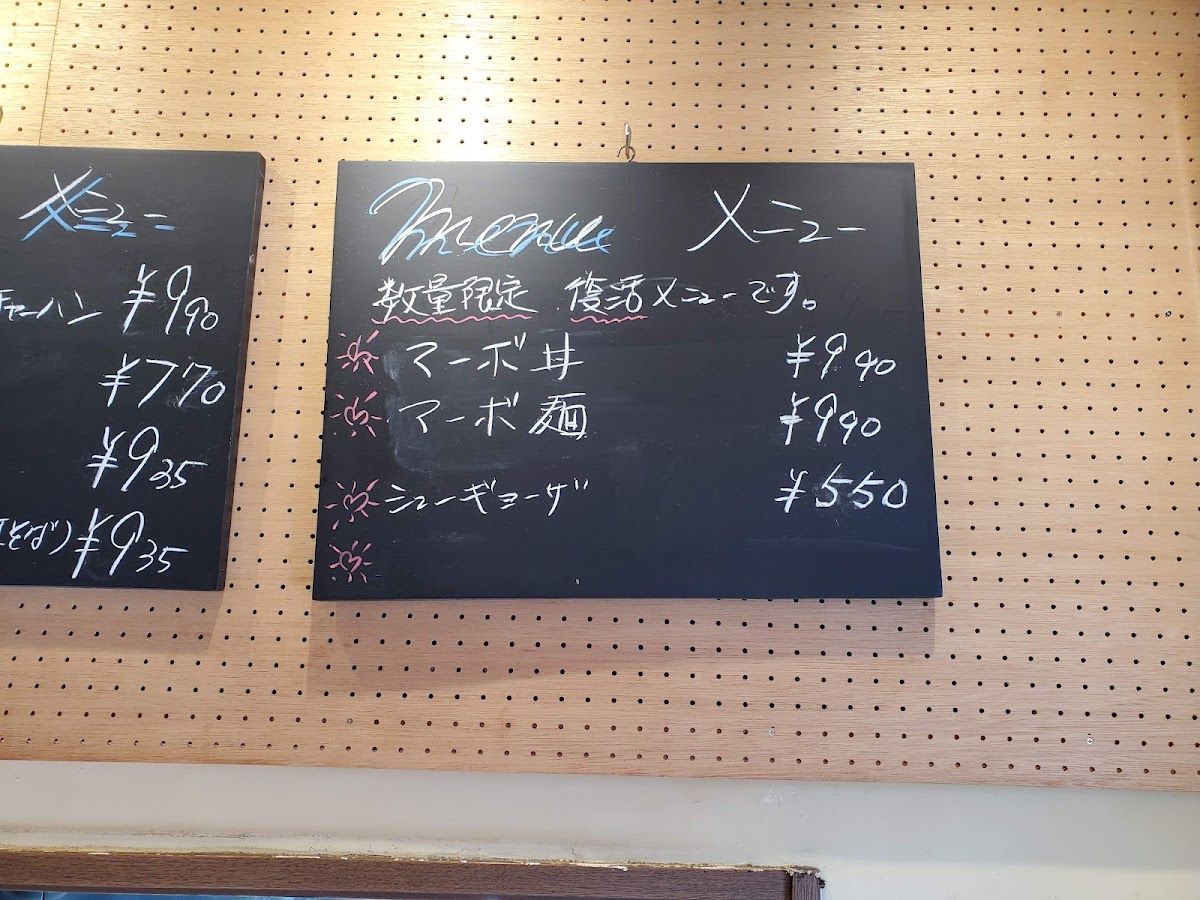 メニュー
チャーハン ¥990
¥770
¥935
そば) ¥935
menu メニュー
数量限定 復活メニューです。
マーボ丼 ¥990
マーボ麺 ¥990
シューギョーザ ¥550